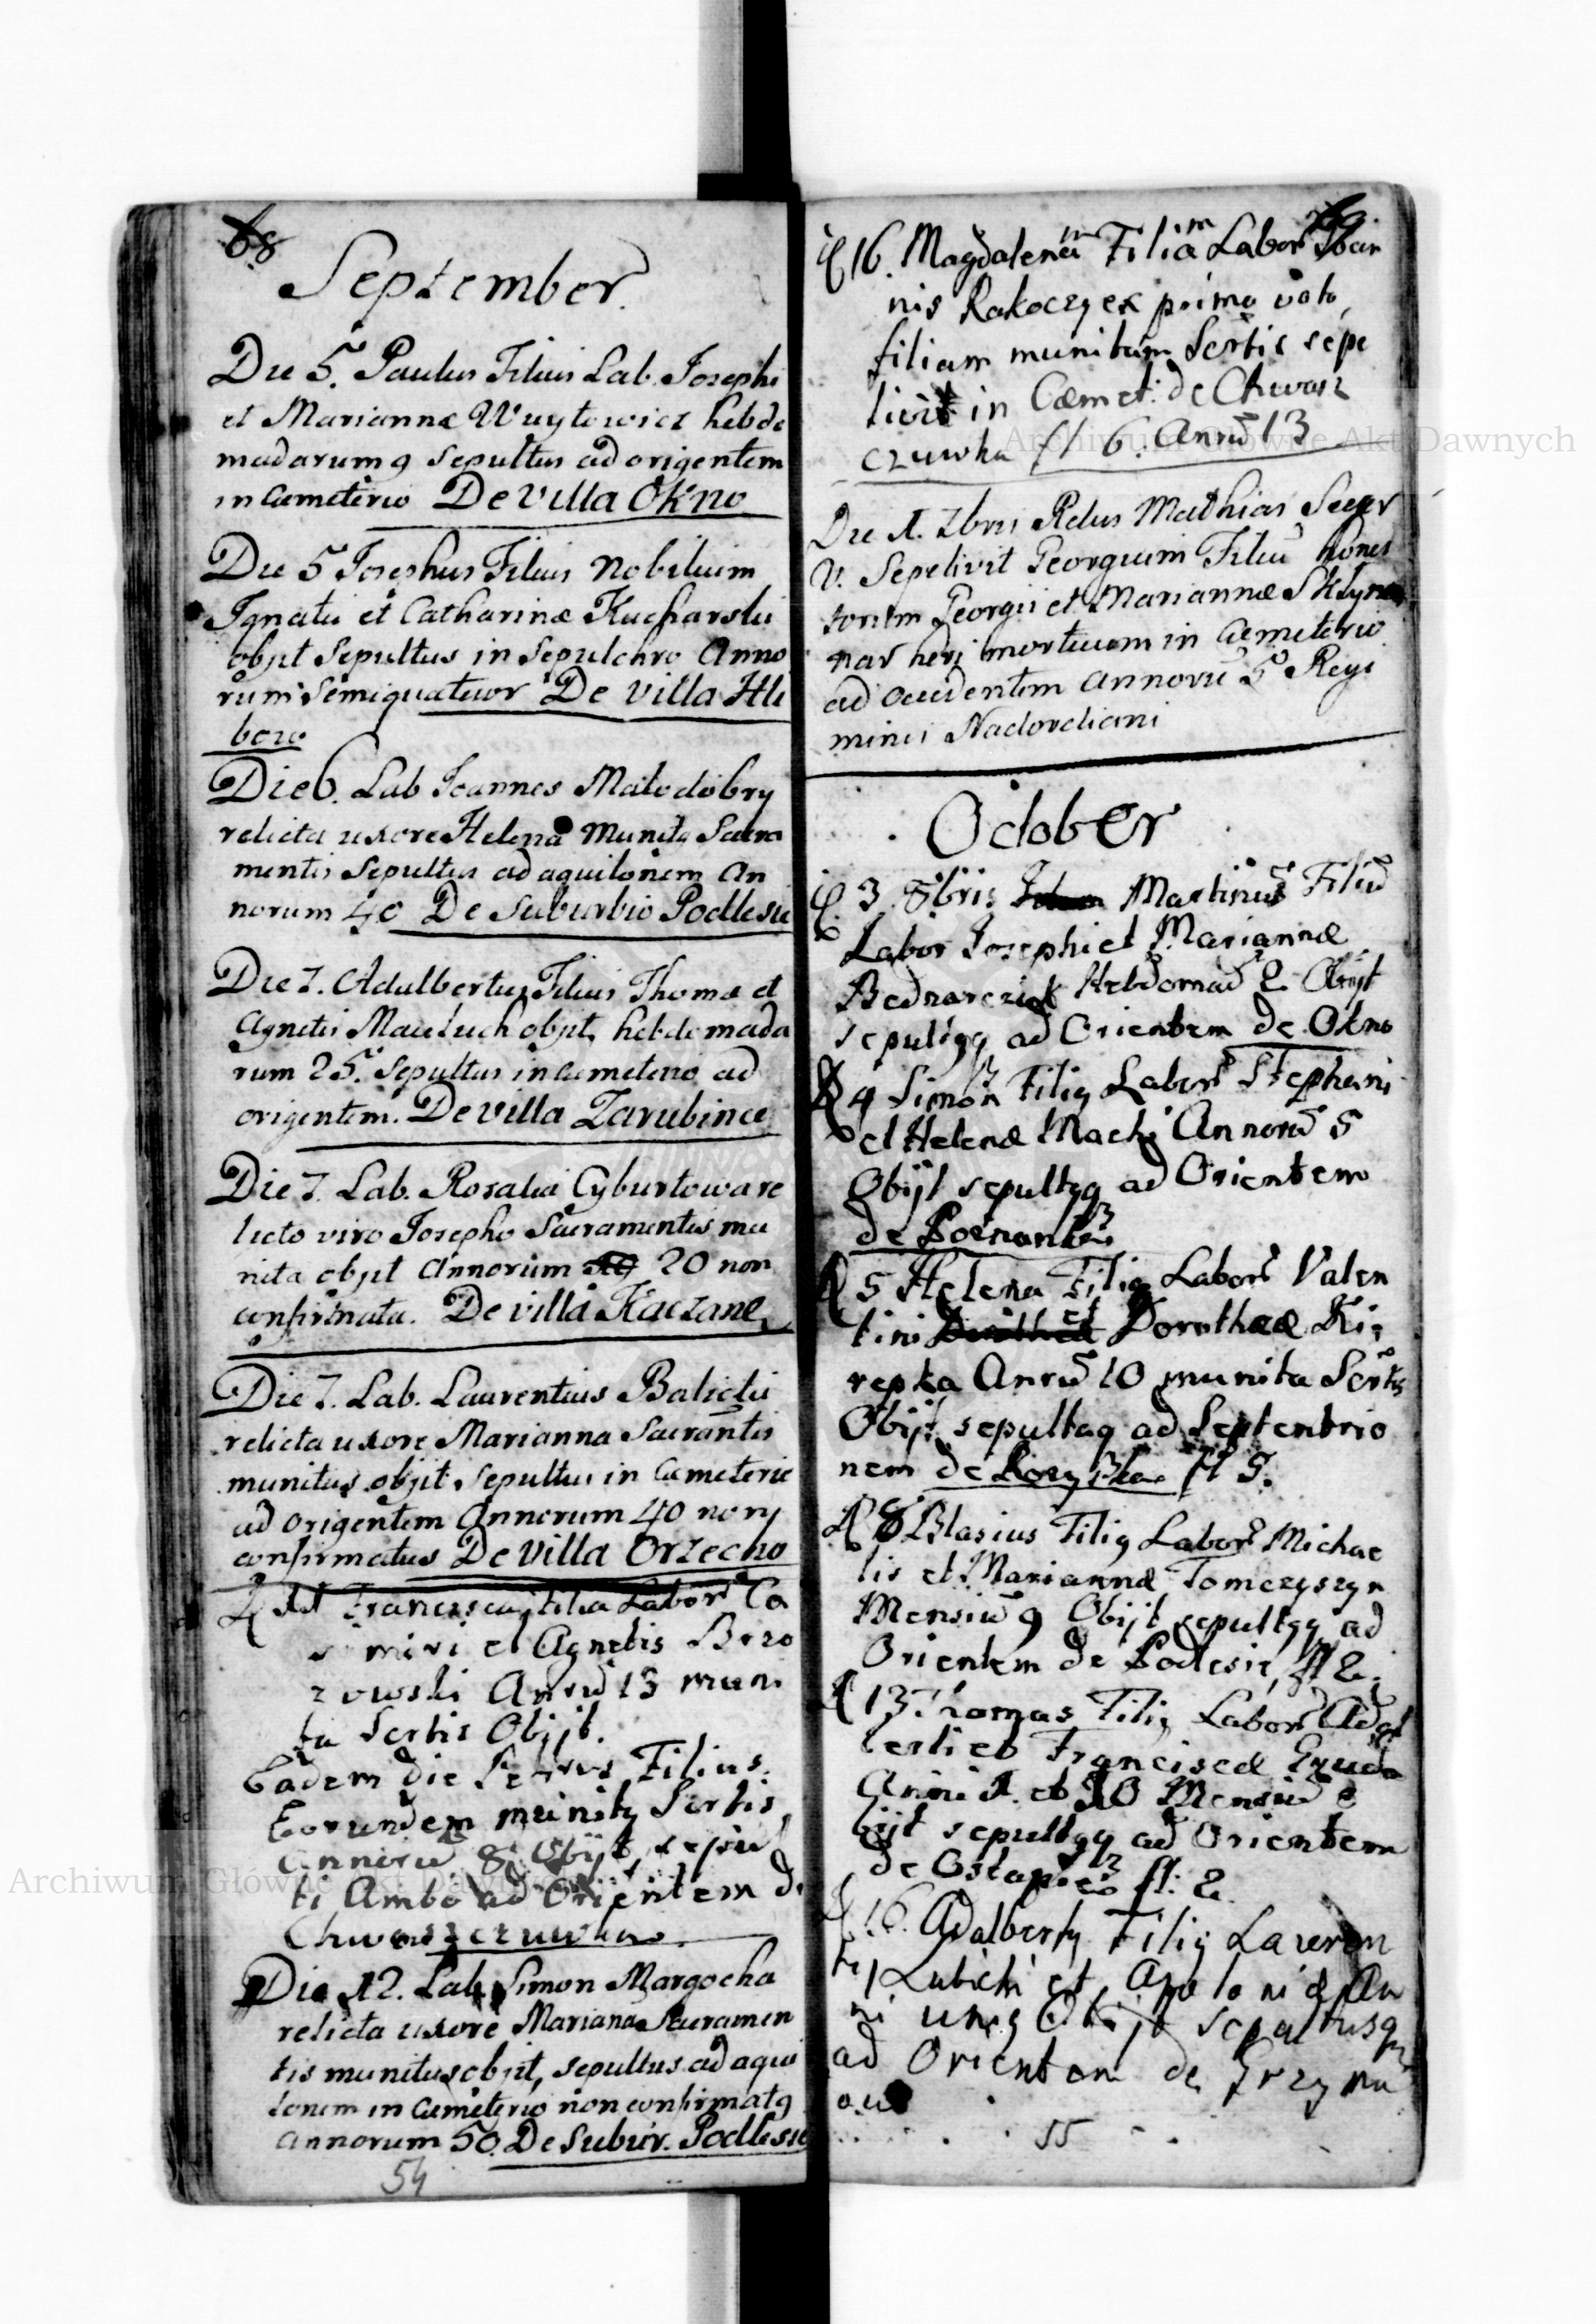 68
September.
Die 5. Paulus Filius Lab. Josephi
et Mariannæ Wuytowicz hebdo
madarum 9 Sepultus ad origentem
in Cæmeterio De Villa Okno
Die 5 Josephus Filius Nobilium
Ignatii et Catharinæ Kucharski
objit Sepultus in Sepulchro Anno
rum Semiquatuor De Villa Hli
boze
Die 6. Lab Joannes Malodobry
relicta uxore Helena munitq Sacra
mentis Sepultus ad aquilonem An
norum 40 De Suburbio Podlesie
Die 7. Adalbertus Filius Thomæ et
Agnetis Maciuch objit, hebdomada
rum 25. Sepultus in cæmeterio ad
origentem. De Villa Zarubince
Die 7. Lab. Rosalia Cyburtowa re
licto viro Josepho Sacramentis mu
nita objit Annorum 20 non
confirmata. De villa Kaczane
Die 7. Lab. Laurentius Balicki
relicta uxore Marianna Sacramtis
munitus objit, Sepultus in Cæmeterio
ad origentem Annorum 40 non
confirmatus De Villa Orzecho
Francisca Filia Labor Ca
simiri et Agnetis Brzo
zowski Anrū 13 muni
ta Sertis Objit.
Eadem die Petrus Filius
Eorundem munitq Sertis
Annorū 8 Objit, sepul
ti Ambo ad Orientem de
Chwaszczuwka
Die 12. Lab. Simon Margocha
relicta uxore Mariana Sacramen
tis munitus objit, sepultus ad aqui
lonem in Cæmeterio non confirmatq
Annorum 50. De Subur. Podlesie
54
69.
16. Magdalenam Filiam Labor Joan
nis Rakoczy ex primo voto
filiam munitam Sertis sepe
livit in Cæmet: de Chwasz
czuwka fl 6. Anrū 13
Die 1. 7bris Rdus Mathias Seeger
V. Sepelivit Georgium Filiū hones
torum Georgii et Mariannæ
nar heri mortuum in Cæmeterio
ad occidentem annorū 5 Regi
minis Nadordiani
October
3 8bris Martinus Filiū
Labor Josephi et Mariannæ
Bednarczuk Hebdomad 2 Obijt
sepultqq ad Orientem de Okno
4 Simon Filiq Labor Stephani
et Helenæ Machi Annorū 5
Obijt sepultqq ad Orientem
de Poznanka
5 Helena Filiq Labor Valen
tini et Dorothææ Ki
repka Anrū 10 munita Sertis
Obijt sepultaq ad Septentrio
nem de fl 5.
8 Blasius Filiq Labor Michae
lis et Mariannæ Tomczyszyn
Mensiū 9 Obijt sepultqq ad
Orientem de Podlesie, fl 2.
13 Thomas Filiq Labor Adal
berti et Franciscæ
Anni 1. et 10 Mensiū o
bijt sepultqq ad Orientem
de Ostapie fl: 2.
16. Adalbertq Filiq Lauren
tij Lubicki et Apoloniæ An
ni uniq Obijt sepultusq
ad Orientem de Grzyma
ow
55
Archiwum Główne Akt Dawnych
Archiwum Główne Akt Dawnych